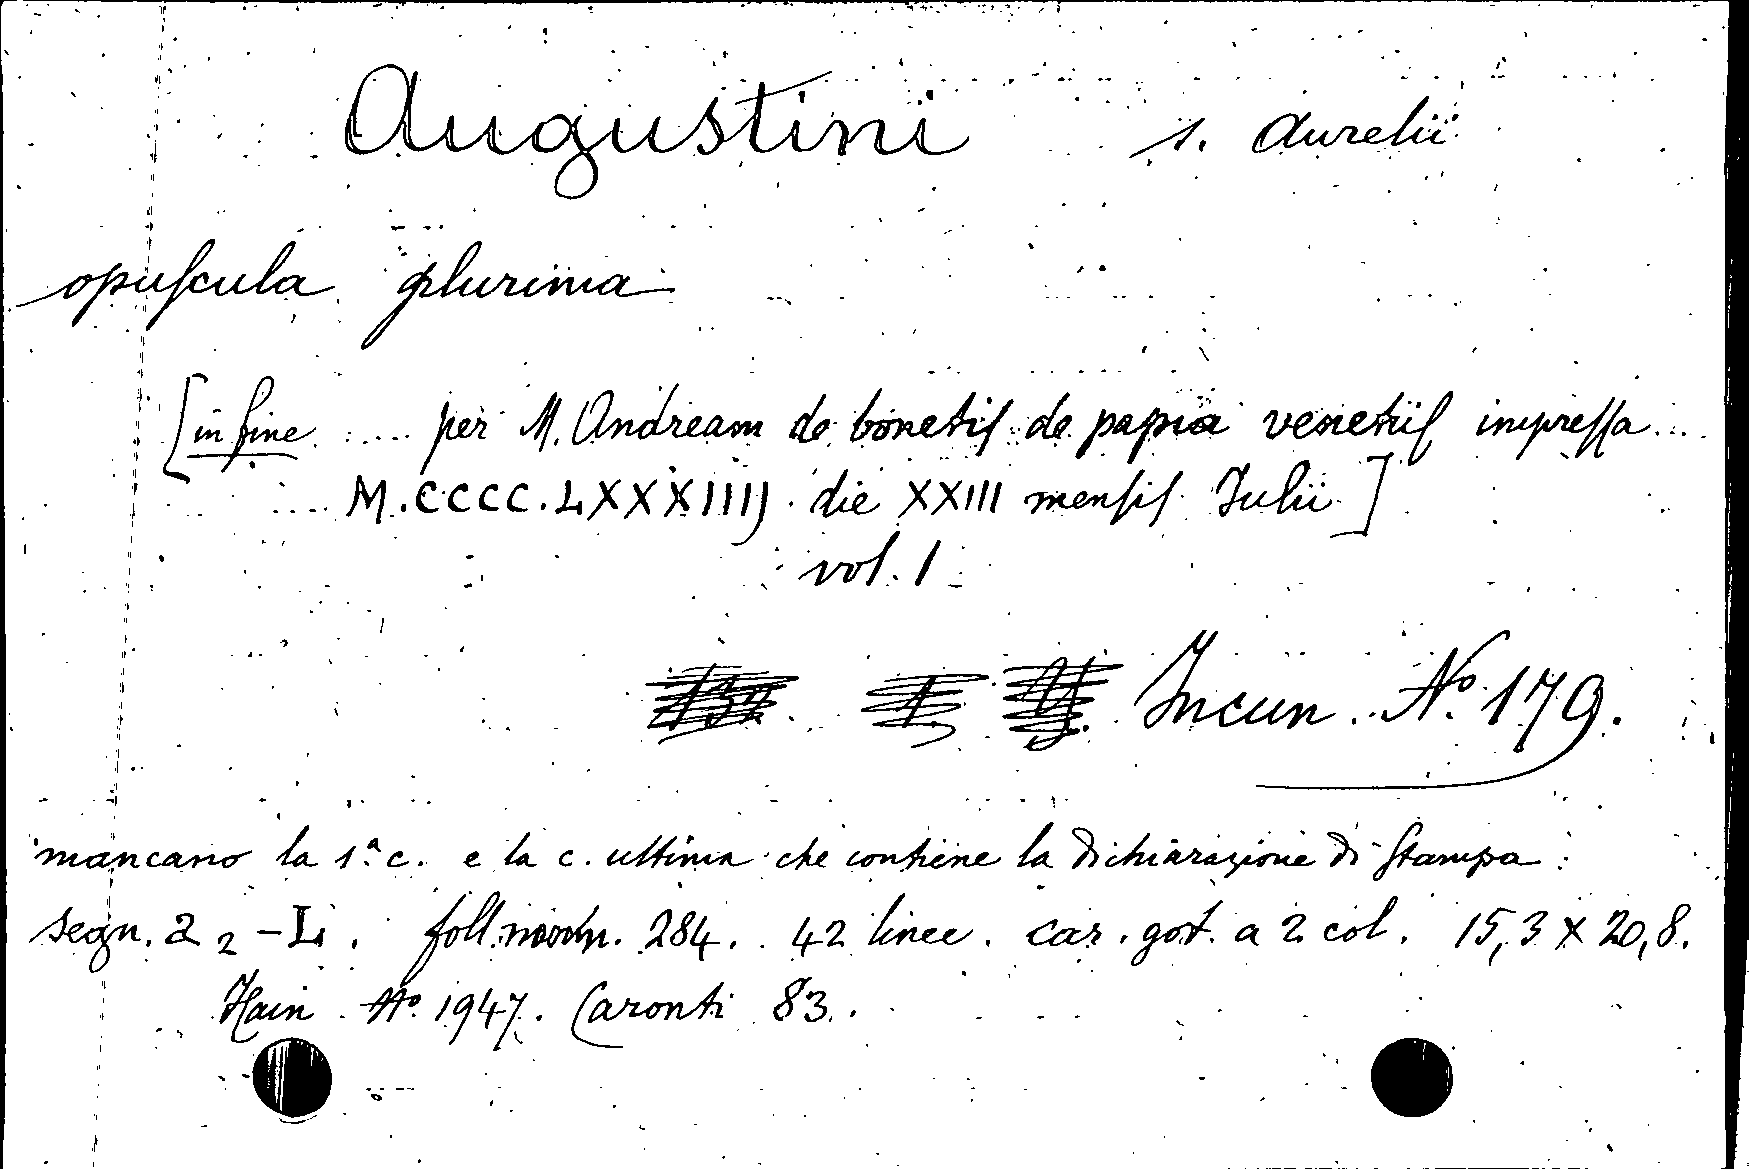 Augustini s. Aurelii
opuſcula plurima
[in fine ..... per M. Andream de bonetiſ de papia venetiiſ impreſſa ....
.... M.CCCC.LXXXIIIJ. die XXIII menſiſ Julii ]
vol. 1
Incun. Nº. 179.
mancano la 1ª c. e la c. ultima che contiene la dichiarazione di ſtampa:
segn. a 2 - L. foll. 284. 42 linee. car. got. a 2 col. 15,3 X 20,8.
Hain Nº. 1947. Caronti 83.